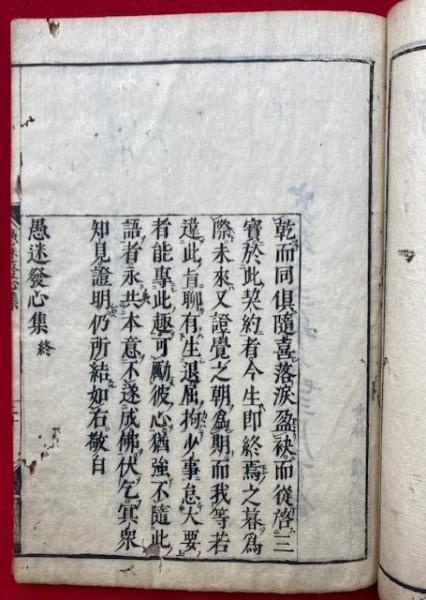 乾而同俱隨喜落淚盈袂而從啓三
寶於此契約者今生即終焉之暮爲
際未來又證覺之朝爲期而我等若
違此旨聊有生退屈拘少事怠大要
者能專此趣可勵彼心猶強不隨此
語者永共本意不遂成佛伏乞冥衆
知見證明仍所結如右敬白
愚迷發心集 終